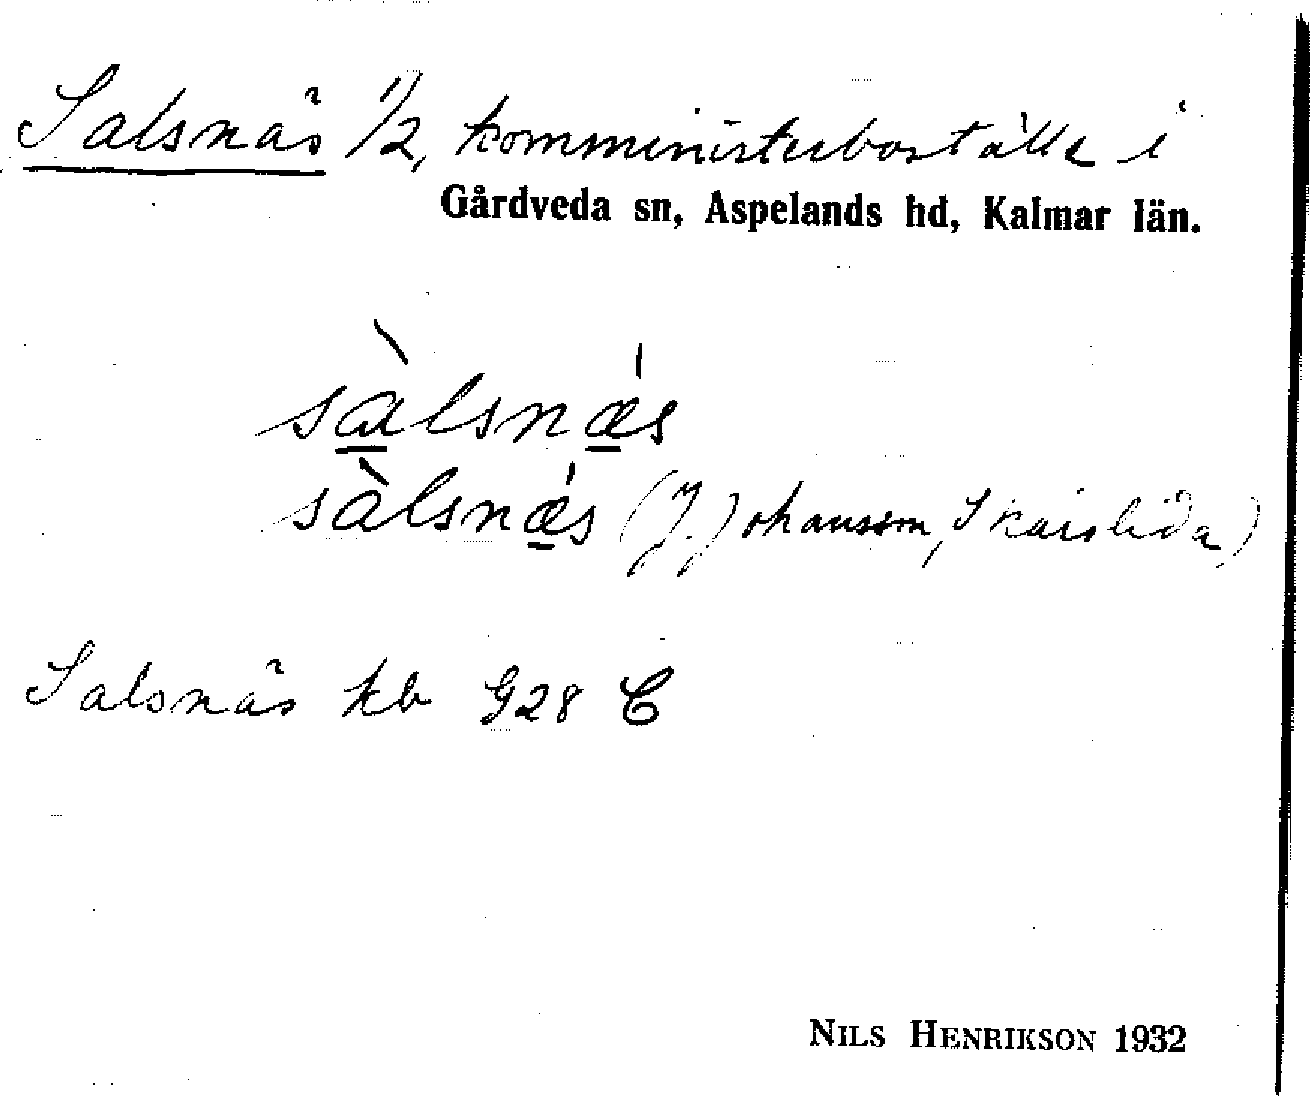 Salsnäs 1/2, komministerboställe i
Gårdveda sn, Aspelands hd, Kalmar län.
sàlsnǽs
sàlsnǽs (J. Johansson,
Salsnäs kb G28 C
NILS HENRIKSON 1932